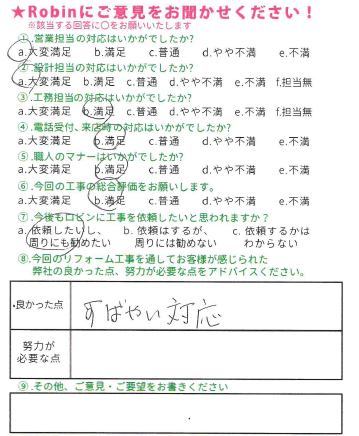 ★Robinにご意見をお聞かせください！
※該当する回答に○をお願いいたします
①.営業担当の対応はいかがでしたか?
a.大変満足 b.満足 c.普通 d.やや不満 e.不満
②.設計担当の対応はいかがでしたか?
a.大変満足 b.満足 c.普通 d.やや不満 e.不満 f.担当無
③.工務担当の対応はいかがでしたか?
a.大変満足 b.満足 c.普通 d.やや不満 e.不満 f.担当無
④.電話受付、来店時の対応はいかがでしたか?
a.大変満足 b.満足 c.普通 d.やや不満 e.不満
⑤.職人のマナーはいかがでしたか?
a.大変満足 b.満足 c.普通 d.やや不満 e.不満
⑥.今回の工事の総合評価をお願いします。
a.大変満足 b.満足 c.普通 d.やや不満 e.不満
⑦.今後もロビンに工事を依頼したいと思われますか？
a.依頼したいし、 b.依頼はするが、 c.依頼するかは
周りにも勧めたい 周りには勧めない わからない
⑧.今回のリフォーム工事を通してお客様が感じられた
弊社の良かった点、努力が必要な点をアドバイスください。
良かった点 すばやい対応
努力が
必要な点
⑨.その他、ご意見・ご要望をお書きください